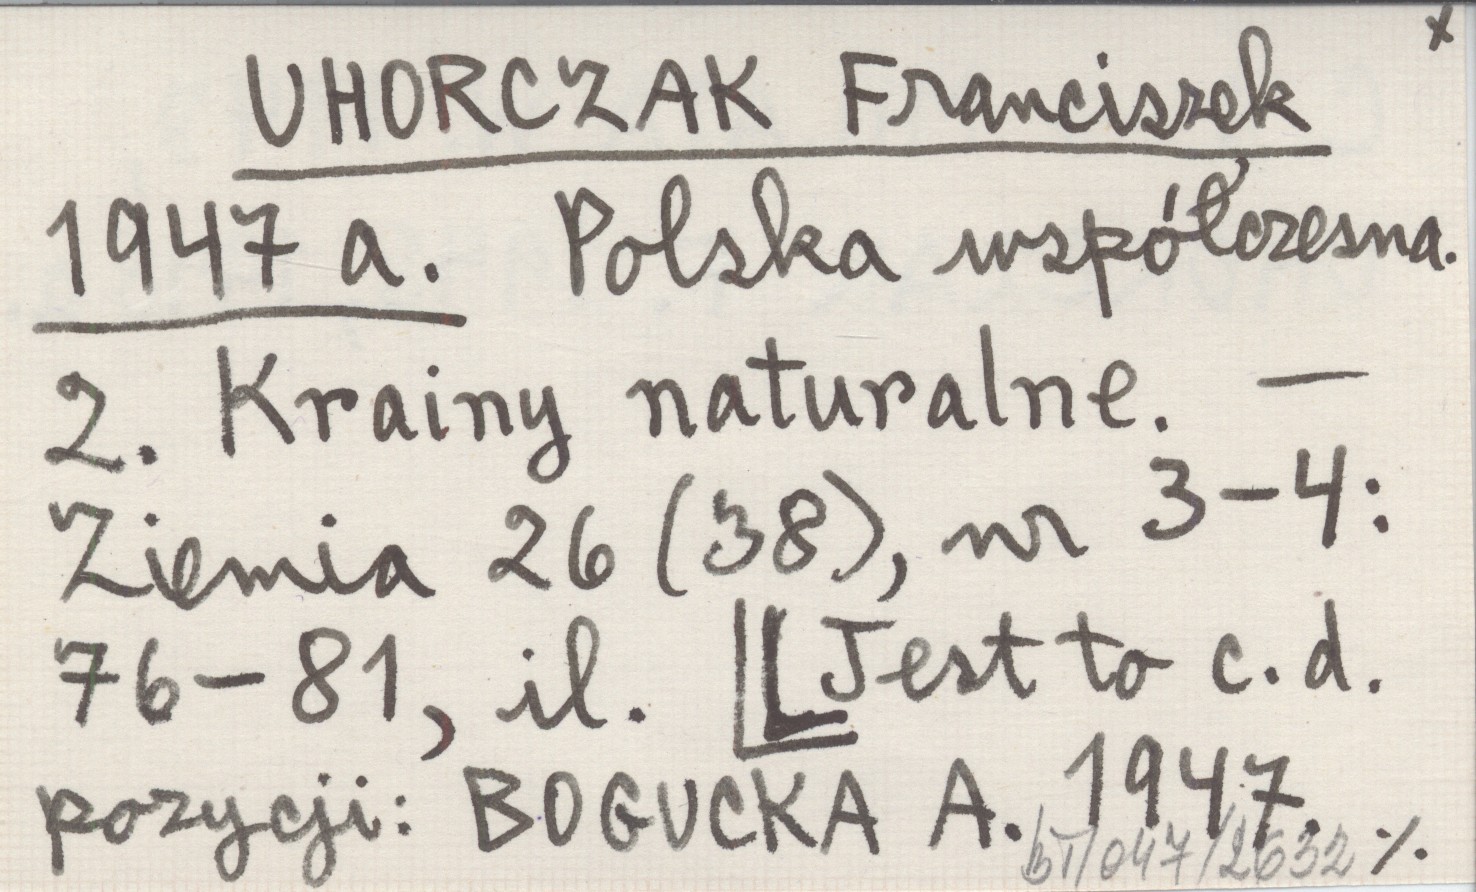 x
UHORCZAK Franciszek
1947 a. Polska współczesna.
2. Krainy naturalne. —
Ziemia 26 (38), nr 3-4:
76-81, il. Jest to c.d.
pozycji: BOGUCKA A. 1947. ./.
bT/047/2632